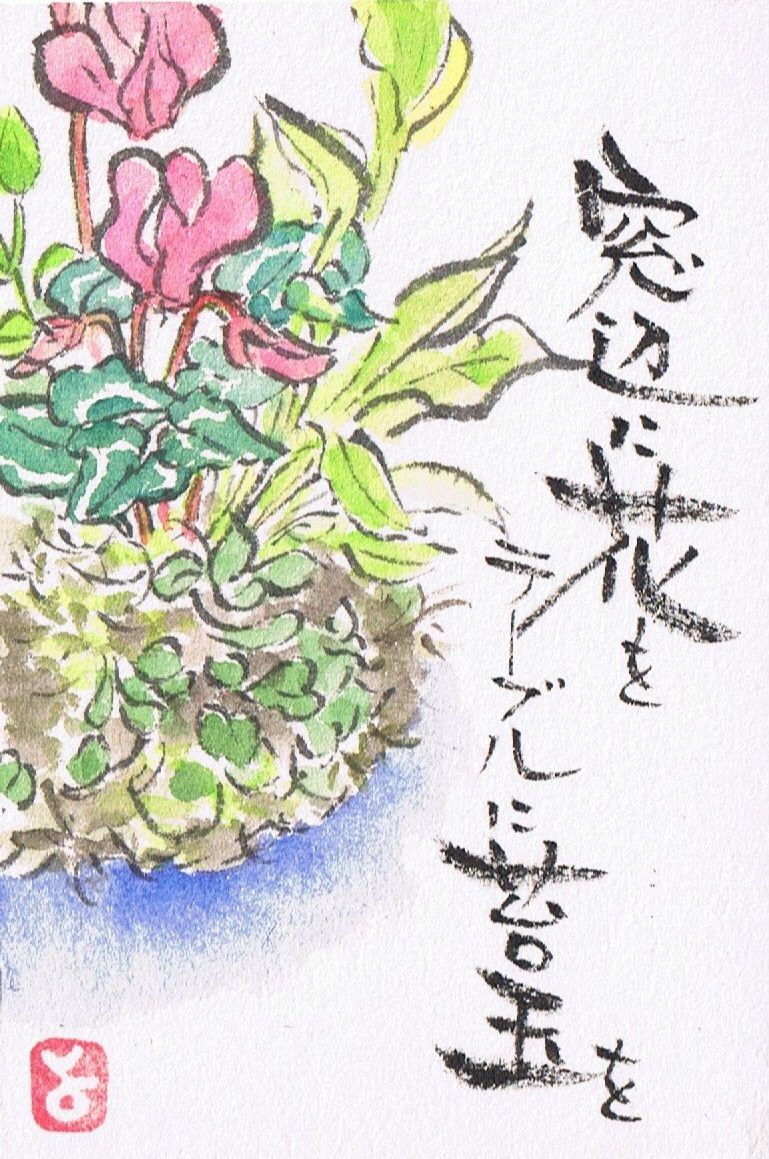 窓辺に花を
テーブルに苔玉を